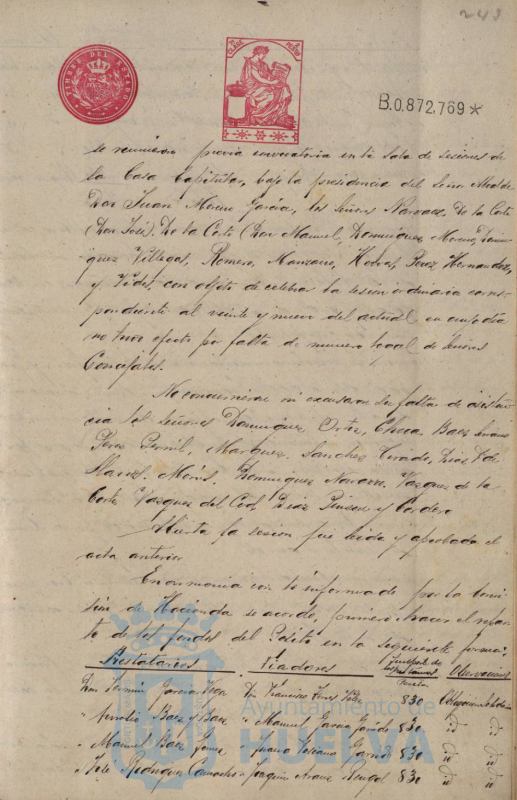 243
TIMBRE DEL ESTADO
B.0.872.769*
se reunieron previa convocatoria en la Sala de sesiones de
la Casa Capitular, bajo la presidencia del Señor Alcalde
Don Juan Moreno García, los Señores Narvaez, De la Corte
(Don José), De la Corte (Don Manuel, Dominguez Moreno,
quez Villegas, Romero, Manzano, Perez Hernandez
y Vides, con objeto de celebrar la sesión ordinaria corres-
pondiente al veinte y nueve del actual en cuyo dia
no tuvo efecto por falta de numero legal de Señores
Concejales.
No concurrieron ni excusaron su falta de asisten-
cia los Señores Dominguez Ortiz, Checa, Baez
Perez Marquez, Sanchez Tirado, Diaz
Dominguez Navarro, Vazquez de la
Corte, Vazquez del Diaz Pinzon y Cordero
Abierta la sesión fue leida y aprobada el
acta anterior
En armonia con lo informado por la Comi-
sión de Hacienda se acordó, primero: hacer el repar-
to de los fondos del Pósito en la seguiente forma:
Prestatarios Fiadores Observaciones
Don Fermin Garcia Don Francisco 830
" Aurelio Baez y Baez " Manuel Garcia Garrido 830
" Manuel Baez Gomez " Juana Garrido 830
" José Rodriguez Camacho " Joaquin 830
Ayuntamiento de
HUELVA